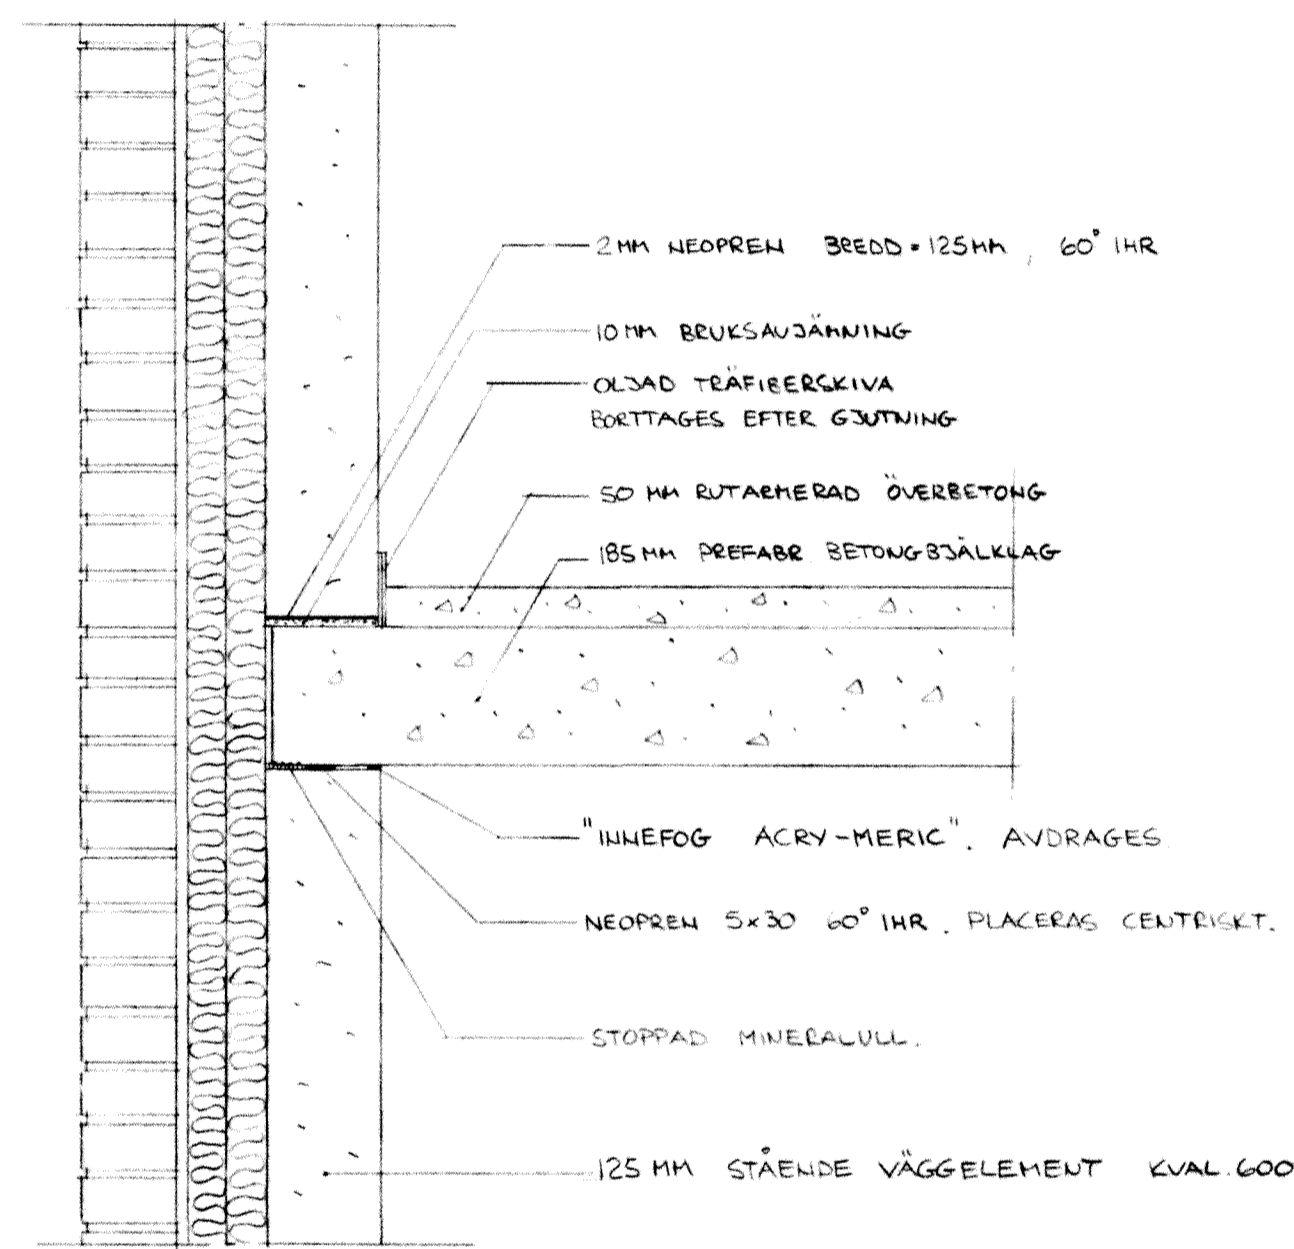 2 MM NEOPREN BREDD = 125 MM, 60° IHR
10 MM BRUKSAVJÄMNING
OLJAD TRÄFIBERSKIVA
BORTTAGES EFTER GJUTNING
50 MM RUTARMERAD ÖVERBETONG
185 MM PREFABR BETONGBJÄLKLAG
"INNEFOG ACRY-MERIC". AVDRAGES
NEOPREN 5x30 60° IHR. PLACERAS CENTRISKT.
STOPPAD MINERALULL.
125 MM STÅENDE VÄGGELEMENT KVAL. 600